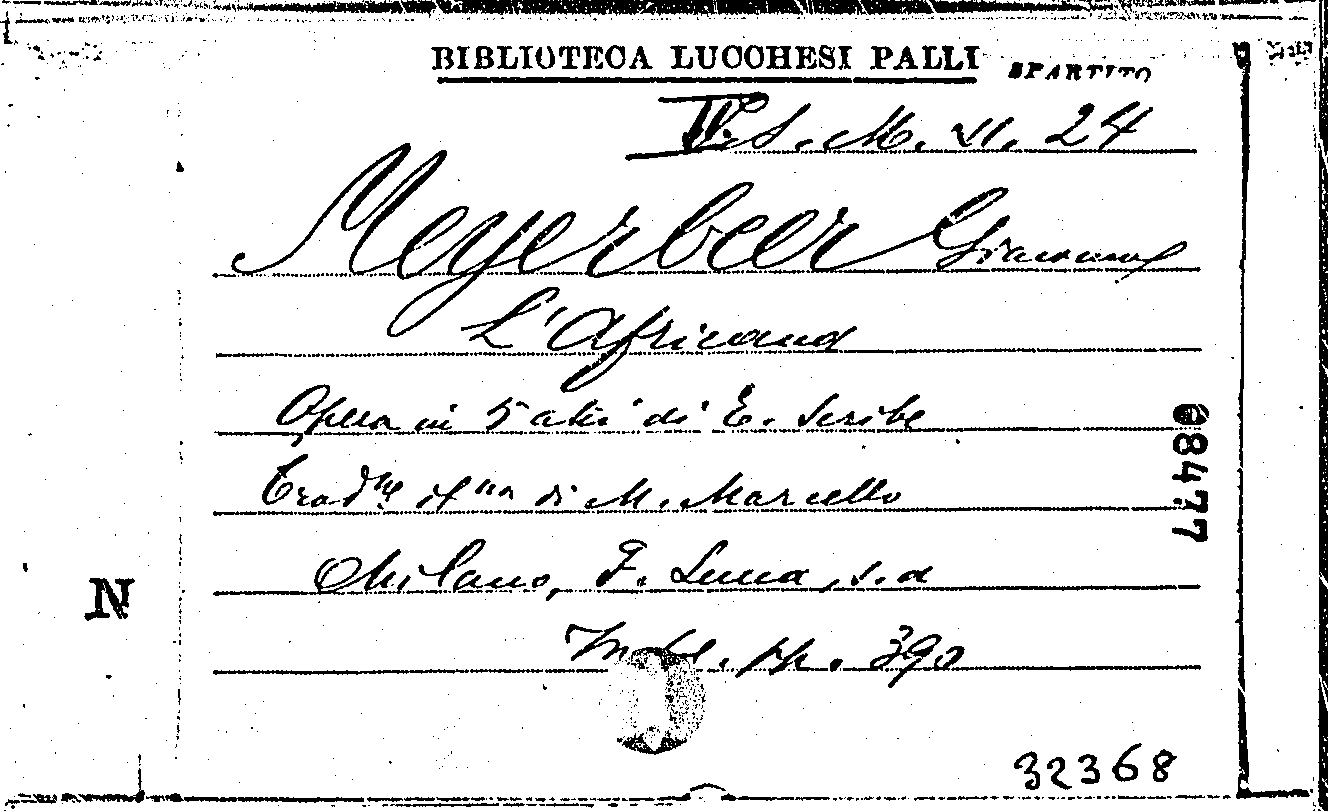 BIBLIOTECA LUCCHESI PALLI SPARTITO
IV. S. M. VI. 24
Meyerbeer Giacomo
L'Africana
Opera in 5 atti di E. Scribe
Trad.ne it.na di M. Marcello
Milano, F. Lucca, s.d
pp. 390
08477
N
32368